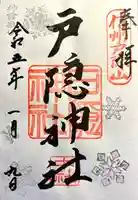 奉拝
信州戸隠山
戸隠神社
令和五年
一月
九日